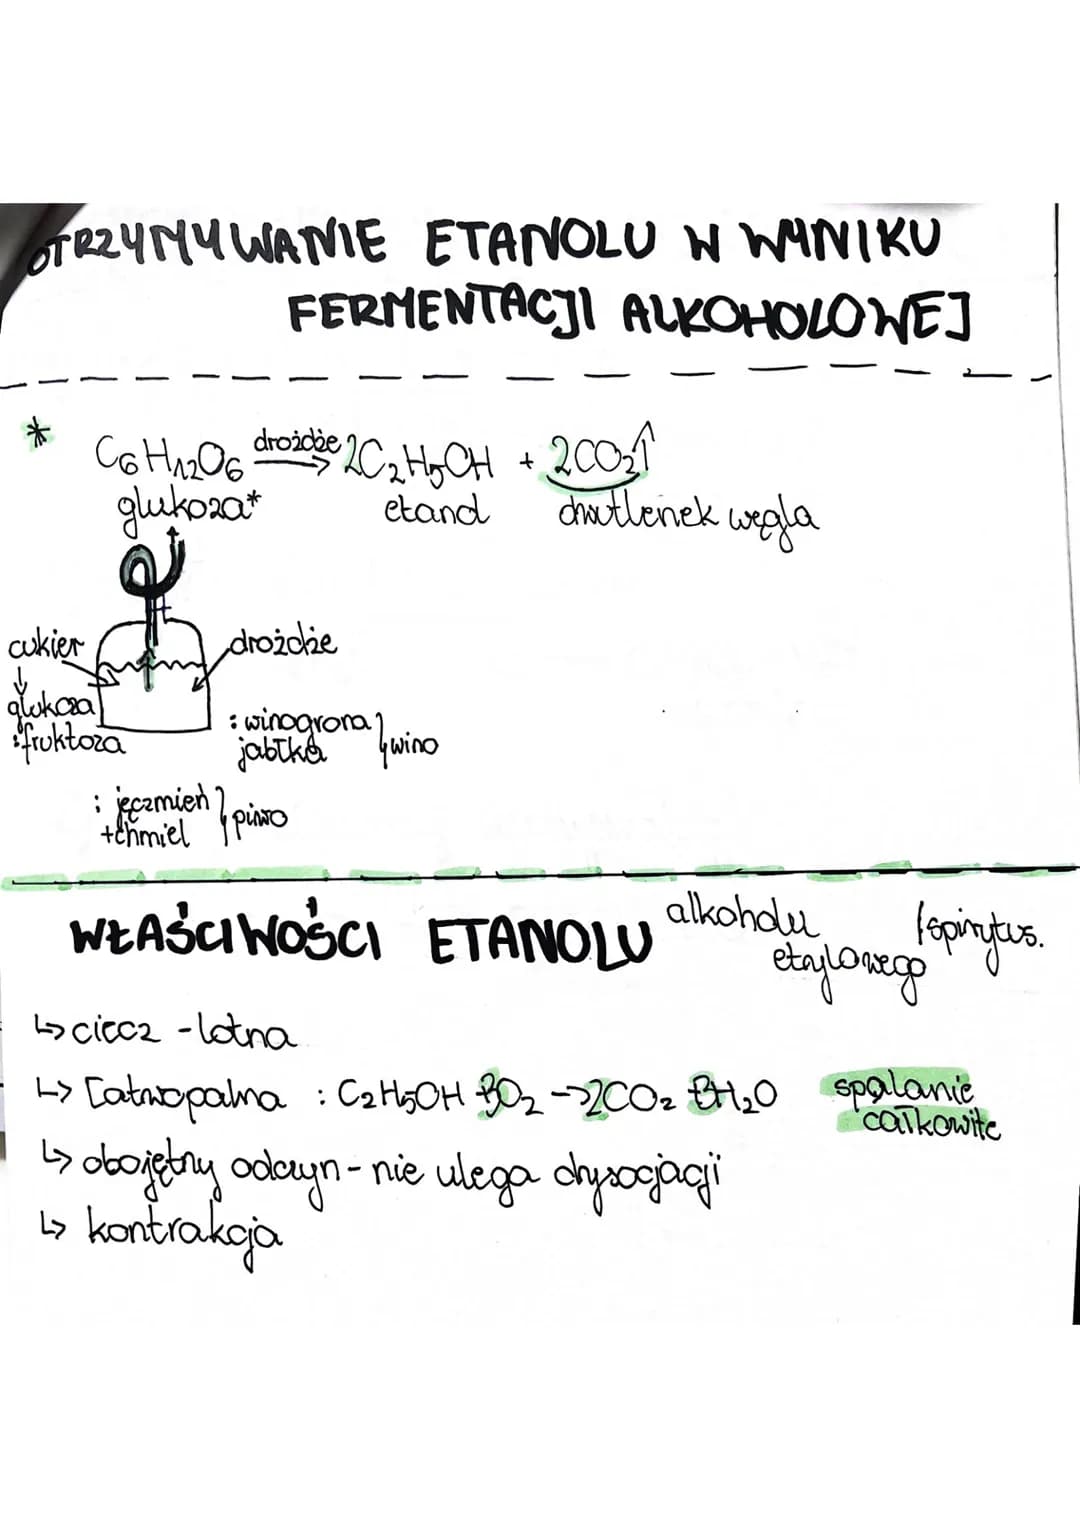 OTRZYMYWANIE ETANOLU W WYNIKU
FERMENTACJI ALKOHOLOWEJ
* C6H12O6 drożdże → 2C2H5OH + 2CO2↑
glukoza* etanol dwutlenek węgla
cukier drożdże
↓
glukoza
: fruktoza
: winogrona } wino
jabłka
: jęczmień } piwo
+chmiel
WŁAŚCIWOŚCI ETANOLU alkoholu etylowego /spirytus.
↳ ciecz - lotna
↳ łatwopalna : C2H5OH + 3O2 → 2CO2 + 3H2O spalanie całkowite
↳ obojętny odczyn - nie ulega dysocjacji
↳ kontrakcja